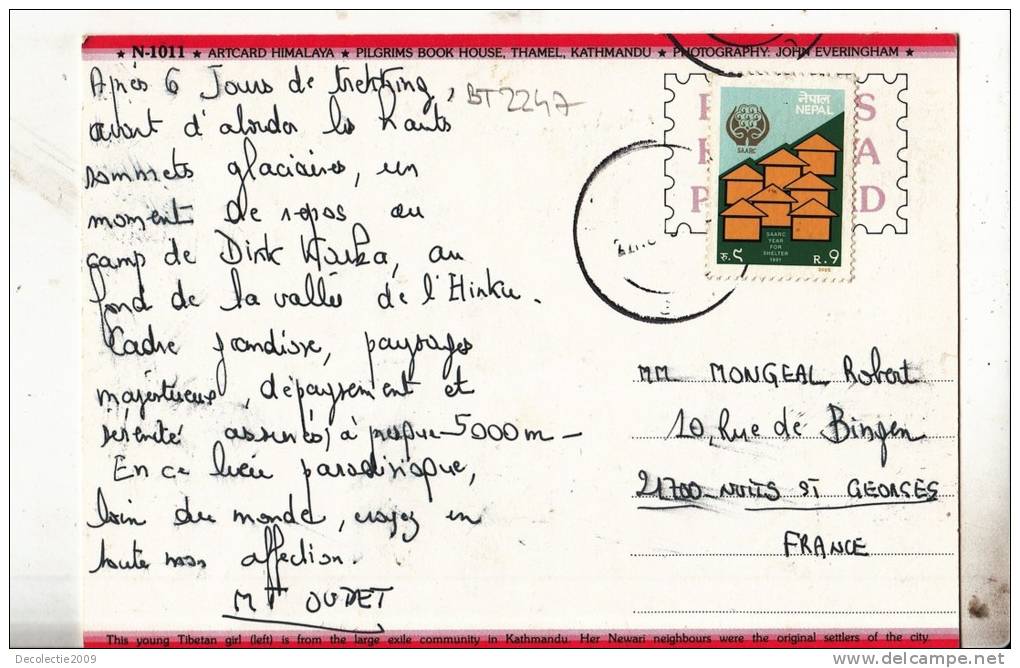 ★ N-1011 ★ ARTCARD HIMALAYA ★ PILGRIMS BOOK HOUSE, THAMEL, KATHMANDU ★ PHOTOGRAPHY: JOHN EVERINGHAM ★
Après 6 Jours de trekking,
BT2247
avant d'aborder les hauts
sommets glaciaires, un
moment de repos au
camp de Dirk Harka, au
fond de la vallée de l'Hinku.
Cadre grandiose, paysages
majestueux, dépaysement et
sérénité assurés, à presque 5000m -
En ce lieu paradisiaque,
loin du monde, croyez en
toute mon affection.
OUDET
नेपाल
NEPAL
SAARC
SAARC
YEAR
FOR
SHELTER
1991
रु. ९
R. 9
MM MONGEAL Robert
10, Rue de Bingen
21700 - NUITS ST GEORGES
FRANCE
This young Tibetan girl (left) is from the large exile community in Kathmandu. Her Newari neighbours were the original settlers of the city
Decolectie2009
delcampe.net